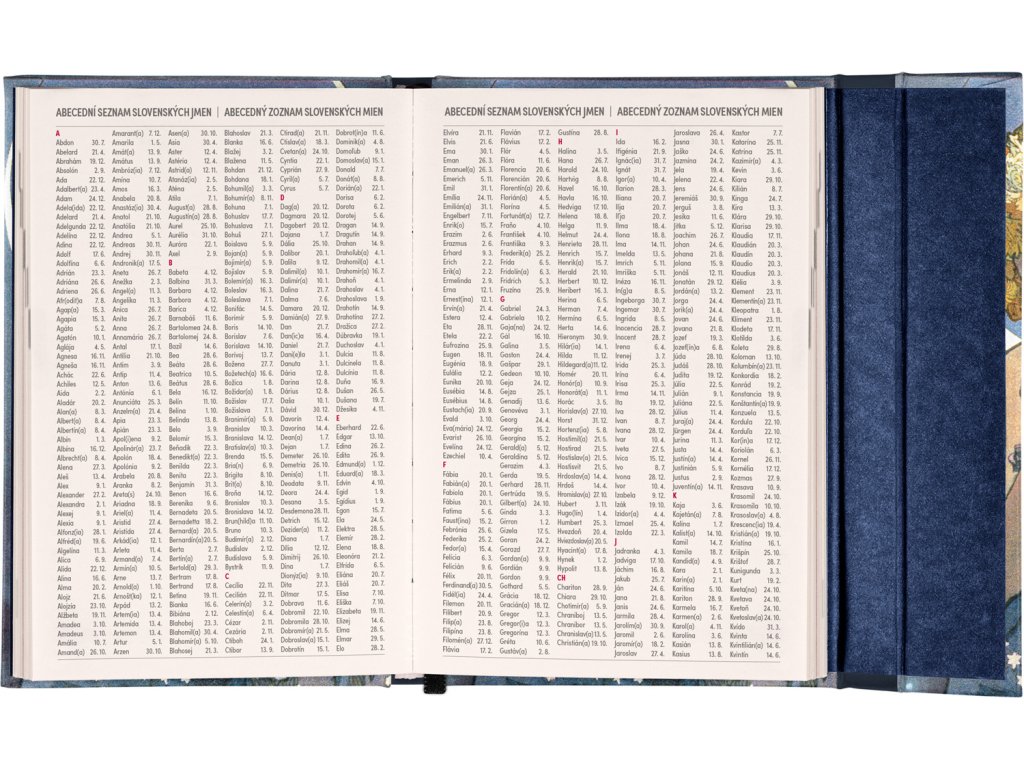 ABECEDNÍ SEZNAM SLOVENSKÝCH JMEN | ABECEDNÝ ZOZNAM SLOVENSKÝCH MIEN
A
Abdon 30. 7.
Abelard 21. 4.
Abrahám 19. 12.
Absolón 2. 9.
Ada 22. 12.
Adalbert(a) 23. 4.
Adam 24. 12.
Adela(ida) 22. 12.
Adelard 21. 4.
Adelgunda 22. 12.
Adelína 22. 12.
Adina 22. 12.
Adolf 17. 6.
Adolfína 6. 6.
Adrián 23. 3.
Adriána 26. 6.
Adriena 26. 6.
Afr(odit)a 7. 8.
Agap(a) 15. 3.
Agapia 15. 3.
Agáta 5. 2.
Agatón 10. 1.
Aglája 4. 5.
Agnesa 16. 11.
Agneša 16. 11.
Achác 22. 6.
Achiles 12. 5.
Aida 2. 2.
Aladár 20. 2.
Alan(a) 8. 3.
Albert(a) 8. 4.
Albertín(a) 8. 4.
Albín 1. 3.
Albína 16. 12.
Albrecht(a) 8. 4.
Alena 27. 3.
Aleš 13. 4.
Alex 9. 1.
Alexander 27. 2.
Alexandra 2. 1.
Alexej 9. 1.
Alexia 9. 1.
Alfonz(ia) 28. 1.
Alfréd(a) 19. 6.
Algelína 11. 3.
Alica 6. 9.
Alida 22. 12.
Alina 16. 6.
Alma 20. 2.
Alojz 21. 6.
Alojzia 23. 10.
Alžbeta 19. 11.
Amadea 3. 10.
Amadeus 3. 10.
Amália 10. 7.
Amand(a) 26. 10.
Amarant(a) 7. 12.
Amarila 1. 5.
Amát(a) 13. 9.
Amátus 13. 9.
Ambróz(ia) 7. 12.
Amina 10. 7.
Amos 16. 3.
Anabela 20. 8.
Anastáz(ia) 30. 4.
Anatol 21. 10.
Anatólia 21. 10.
Andrea 5. 1.
Andreas 30. 11.
Andrej 30. 11.
Andronik(a) 17. 5.
Aneta 26. 7.
Anežka 2. 3.
Angel(a) 11. 3.
Angelika 11. 3.
Anica 26. 7.
Anita 26. 7.
Anna 26. 7.
Annamária 26. 7.
Antal 17. 1.
Antília 21. 10.
Antim 3. 9.
Antip 11. 4.
Anton 13. 6.
Antónia 6. 1.
Anunciáta 25. 3.
Anzelm(a) 21. 4.
Apia 23. 3.
Apián 23. 3.
Apol(i)ena 9. 2.
Apolinár(a) 23. 7.
Apolón 18. 4.
Apolónia 9. 2.
Arabela 20. 8.
Aranka 8. 2.
Areta(s) 24. 10.
Ariadna 18. 9.
Ariel(a) 11. 4.
Aristid 27. 4.
Aristída 27. 4.
Arkád(ia) 12. 1.
Arleta 11. 4.
Armand(a) 7. 4.
Armín(a) 10. 5.
Arne 13. 7.
Arnold(a) 1. 10.
Arnošt(ka) 12. 1.
Arpád 13. 2.
Artem(ia) 13. 4.
Artemida 13. 4.
Artemon 13. 4.
Artur 5. 1.
Arzen 30. 10.
Asen(a) 30. 10.
Asia 30. 4.
Aster 12. 4.
Astéria 12. 4.
Astrid(a) 12. 11.
Atanáz(ia) 2. 5.
Aténa 2. 5.
Atila 7. 1.
August(a) 28. 8.
Augustín(a) 28. 8.
Aurel 25. 10.
Aurélia 31. 10.
Auróra 22. 1.
Axel 2. 9.
B
Babeta 4. 12.
Balbína 31. 3.
Barbara 4. 12.
Barbora 4. 12.
Barica 4. 12.
Barnabáš 11. 6.
Bartolomea 24. 8.
Bartolomej 24. 8.
Bazil 14. 6.
Bea 28. 6.
Beáta 28. 6.
Beatrica 10. 5.
Beátus 28. 6.
Bela 16. 12.
Belin 11. 10.
Belína 1. 10.
Belinda 13. 8.
Belo 3. 9.
Belomír 15. 3.
Beňadik 22. 3.
Benedikt(a) 22. 3.
Benilda 22. 3.
Benita 22. 3.
Benjamín 31. 3.
Benon 16. 6.
Berenika 9. 6.
Bernadeta 20. 5.
Bernadetta 18. 2.
Bernard(a) 20. 5.
Bernardín(a) 20. 5.
Berta 2. 7.
Bertín(a) 2. 7.
Bertold(a) 29. 3.
Bertram 17. 8.
Bertrand 17. 8.
Betina 19. 11.
Bianka 16. 6.
Bibiána 2. 12.
Blahoboj 23. 3.
Blahomil(a) 30. 4.
Blahomír(a) 5. 10.
Blahosej 21. 3.
Blahoslav 21. 3.
Blanka 16. 6.
Blažej 3. 2.
Blažena 11. 5.
Bohdan 21. 12.
Bohdana 18. 1.
Bohumil(a) 3. 3.
Bohumír(a) 8. 11.
Bohuna 7. 1.
Bohuslav 17. 7.
Bohuslava 7. 1.
Bohuš 27. 1.
Boislava 5. 9.
Bojan(a) 5. 9.
Bojimír(a) 5. 9.
Bojislav 5. 9.
Bolemír(a) 16. 3.
Boleslav 16. 3.
Boleslava 7. 1.
Bonifác 14. 5.
Borimír 5. 9.
Boris 14. 10.
Borislav 7. 6.
Borislava 14. 10.
Borivoj 13. 7.
Božena 27. 7.
Božetech(a) 16. 6.
Božica 1. 8.
Božidar(a) 1. 8.
Božidara 17. 7.
Božislava 7. 1.
Branimír(a) 5. 9.
Branislav 10. 3.
Branislava 14. 12.
Bratislav(a) 10. 3.
Brenda 15. 5.
Bria(n) 6. 9.
Brigita 8. 10.
Brit(a) 8. 10.
Broňa 14. 12.
Bronislav 9. 10.
Bronislava 14. 12.
Bruno 10. 3.
Brun(hild)a 11. 10.
Budimír(a) 2. 12.
Budislav 2. 12.
Budislava 5. 9.
Bystrík 11. 9.
C
Cecília 22. 11.
Cecilián 22. 11.
Celerín(a) 3. 2.
Celestín(a) 6. 4.
Cézar 2. 11.
Cezária 2. 11.
Ctiboh 24. 1.
Ctibor 13. 9.
Ctirad(a) 21. 11.
Ctislav(a) 18. 3.
Cvetan(a) 24. 10.
Cyntia 22. 1.
Cyprián 27. 9.
Cyril(a) 5. 7.
Cyrus 5. 7.
D
Dag(a) 20. 12.
Dagmara 20. 12.
Dagobert 20. 12.
Dajana 1. 7.
Dália 25. 10.
Dalibor 20. 1.
Dalila 9. 12.
Dalimil(a) 10. 1.
Dalimír(a) 10. 1.
Dalina 21. 7.
Dalma 7. 6.
Damara 20. 12.
Damián(a) 27. 9.
Dan 21. 7.
Dan(ic)a 16. 4.
Daniel 21. 7.
Dan(i)ela 3. 1.
Danuta 3. 1.
Dária 12. 8.
Darina 12. 8.
Dárius 12. 8.
Daša 10. 1.
Dávid 30. 12.
Davorín 12. 4.
Davorína 14. 4.
Dean(a) 1. 7.
Dejan 1. 6.
Demeter 26. 10.
Demetria 26. 10.
Denis(a) 1. 11.
Deodata 9. 11.
Deora 24. 4.
Desana 3. 5.
Desdemona 28. 11.
Detrich 15. 12.
Dezider(a) 11. 2.
Diana 1. 7.
Dília 12. 12.
Dimitrij 26. 10.
Dina 1. 7.
Dionýz(ia) 9. 10.
Dita 27. 3.
Ditmar 17. 5.
Dobrava 11. 6.
Dobromil 22. 10.
Dobromila 28. 10.
Dobromír(a) 21. 5.
Dobroslav(a) 15. 1.
Dobrotín 15. 1.
Dobrot(in)a 11. 6.
Dominik(a) 4. 8.
Domoľub 9. 1.
Domoslav(a) 15. 1.
Donald 7. 7.
Donát(a) 8. 8.
Dorián(a) 22. 1.
Dorisa 6. 2.
Dorota 6. 2.
Dorotej 5. 6.
Dragan 14. 9.
Dragutín 14. 9.
Drahan 14. 9.
Draholub(a) 4. 1.
Drahomil(a) 4. 1.
Drahomír(a) 16. 7.
Drahoň 4. 1.
Drahoslav 4. 1.
Drahoslava 1. 9.
Drahotín 14. 9.
Drahotína 27. 2.
Dražica 27. 2.
Dúbravka 19. 1.
Duchoslav 4. 1.
Dulcia 11. 8.
Dulcinela 11. 8.
Dulcínia 11. 8.
Duňa 16. 9.
Dušan 26. 5.
Dušana 19. 7.
Džesika 4. 11.
E
Eberhard 22. 6.
Edgar 13. 10.
Edina 26. 2.
Edita 26. 9.
Edmund(a) 1. 12.
Eduard(a) 18. 3.
Edvin 4. 10.
Egid 1. 9.
Egídius 1. 9.
Egon 15. 7.
Ela 24. 5.
Elektra 28. 5.
Elemír 28. 2.
Elena 18. 8.
Eleonóra 21. 2.
Elfrída 6. 5.
Eliána 20. 7.
Eliáš 20. 7.
Elisa 7. 10.
Eliška 7. 10.
Elizabeta 19. 11.
Elizej 14. 6.
Elma 28. 5.
Elmar 29. 5.
Elo 28. 2.
ABECEDNÍ SEZNAM SLOVENSKÝCH JMEN | ABECEDNÝ ZOZNAM SLOVENSKÝCH MIEN
Elvíra 21. 11.
Elvis 21. 6.
Ema 30. 1.
Eman 26. 3.
Emanuel(a) 26. 3.
Emerich 5. 11.
Emil 31. 1.
Emília 24. 11.
Emilián(a) 31. 1.
Engelbert 7. 11.
Enrik(a) 15. 7.
Erazim 2. 6.
Erazmus 2. 6.
Erhard 9. 3.
Erich 2. 2.
Erik(a) 2. 2.
Ermelinda 2. 9.
Erna 12. 1.
Ernest(ína) 12. 1.
Ervín(a) 21. 4.
Estera 12. 4.
Eta 28. 11.
Etela 22. 2.
Eufrozína 25. 9.
Eugen 18. 11.
Eugénia 18. 9.
Eulália 12. 2.
Eunika 20. 10.
Eusébia 14. 8.
Eusébius 14. 8.
Eustach(ia) 20. 9.
Evald 3. 10.
Eva(mária) 24. 12.
Evarist 26. 10.
Evelína 24. 12.
Ezechiel 10. 4.
F
Fábia 20. 1.
Fabián(a) 20. 1.
Fabiola 20. 1.
Fábius 20. 1.
Fatima 5. 6.
Faust(ína) 15. 2.
Febrónia 25. 6.
Federika 25. 2.
Fedor(a) 15. 4.
Felícia 6. 3.
Felicián 9. 6.
Félix 20. 11.
Ferdinand(a) 30. 5.
Fidél(ia) 24. 4.
Filemon 20. 11.
Filibert 20. 9.
Filip(a) 23. 8.
Filipína 23. 8.
Filomén(a) 27. 12.
Flávia 17. 2.
Flavián 17. 2.
Flávius 17. 2.
Flór 4. 5.
Flóra 11. 6.
Florencia 20. 6.
Florencián 20. 6.
Florentín(a) 20. 6.
Florián(a) 4. 5.
Florína 4. 5.
Fortunát(a) 12. 7.
Fraňo 4. 10.
František 4. 10.
Františka 9. 3.
Frederik(a) 25. 2.
Frída 6. 5.
Fridolín(a) 6. 3.
Fridrich 5. 3.
Fruzína 25. 9.
G
Gabriel 24. 3.
Gabriela 10. 2.
Gaja(na) 24. 12.
Gál 16. 10.
Galina 3. 5.
Gaston 24. 4.
Gašpar 29. 1.
Gedeon 10. 10.
Geja 24. 12.
Gejza 25. 1.
Genadij 13. 6.
Genovéva 3. 1.
Georg 24. 4.
Georgia 15. 2.
Georgína 15. 2.
Gerald(a) 5. 12.
Geraldína 5. 12.
Gerazim 4. 3.
Gerda 19. 5.
Gerhard 28. 11.
Gertrúda 19. 5.
Gilbert(a) 24. 10.
Ginda 3. 3.
Girron 1. 2.
Gizela 17. 5.
Goran 24. 2.
Gorazd 27. 7.
Gordan(a) 9. 9.
Gordián 9. 9.
Gordon 9. 9.
Gothard 5. 5.
Grácia 18. 12.
Gracián(a) 18. 12.
Gregor 12. 3.
Gregor(i)a 12. 3.
Gregorína 12. 3.
Gréta 10. 6.
Gustáv(a) 2. 8.
Gustína 28. 8.
H
Halina 3. 5.
Hana 26. 7.
Harold 24. 5.
Hartvig 8. 8.
Havel 16. 10.
Havla 16. 10.
Hedviga 17. 10.
Helena 18. 8.
Helga 11. 9.
Helmut 24. 4.
Henrieta 28. 11.
Henrich 15. 7.
Henrik(a) 15. 7.
Herald 21. 10.
Herbert 10. 12.
Heribert 16. 3.
Herina 6. 5.
Herman 7. 4.
Hermína 6. 5.
Herta 14. 6.
Hieronym 30. 9.
Hilár(ia) 14. 1.
Hilda 11. 12.
Hildegard(a) 11. 12.
Homér 20. 11.
Honór(a) 10. 9.
Honorát(a) 11. 1.
Horác 3. 6.
Horislav(a) 27. 10.
Horst 31. 12.
Hortenz(ia) 5. 8.
Hostimil(a) 21. 5.
Hostirad 21. 5.
Hostislav(a) 21. 5.
Hostisvit 21. 5.
Hrdoslav(a) 14. 4.
Hrdoš 14. 4.
Hromislav(a) 27. 10.
Hubert 3. 11.
Hugo(lín) 1. 4.
Humbert 25. 3.
Hvezdoň 20. 4.
Hviezdoslav(a) 20. 5.
Hyacint(a) 17. 8.
Hynek 1. 2.
Hypolit 13. 8.
CH
Chariton 28. 9.
Chiara 29. 10.
Chotimír(a) 5. 9.
Chraniboj 13. 5.
Chranibor 13. 5.
Chranislav(a) 13. 5.
Christián(a) 19. 10.
I
Ida 16. 2.
Ifigénia 21. 9.
Ignác(ia) 31. 7.
Ignát 31. 7.
Igor(a) 10. 4.
Ilarion 28. 3.
Iliana 20. 7.
Iľja 20. 7.
Iľja 20. 7.
Ilma 18. 4.
Ilona 18. 8.
Ima 14. 11.
Imelda 13. 5.
Imrich 5. 11.
Imriška 5. 11.
Inéza 16. 11.
In(g)a 8. 5.
Ingeborga 30. 7.
Ingemar 30. 7.
Ingrida 8. 5.
Inocencia 28. 7.
Inocent 28. 7.
Irena 6. 4.
Irenej 3. 7.
Irida 25. 3.
Irina 6. 4.
Irisa 25. 3.
Irma 14. 11.
Ita 19. 12.
Iva 28. 12.
Ivan 8. 7.
Ivana 28. 12.
Ivar 10. 4.
Iveta 27. 5.
Ivica 15. 12.
Ivo 8. 7.
Ivona 28. 12.
Ivor 10. 4.
Izabela 9. 12.
Izák 19. 10.
Izidor(a) 4. 4.
Izmael 25. 4.
Izolda 22. 2.
J
Jadranka 4. 3.
Jadviga 17. 10.
Jáchim 16. 8.
Jakub 25. 7.
Ján 24. 6.
Jana 21. 8.
Janis 24. 6.
Jarmila 28. 4.
Jarolím(a) 30. 9.
Jaromil 2. 6.
Jaromír(a) 18. 2.
Jaroslav 27. 4.
Jaroslava 26. 4.
Jasna 30. 1.
Jaško 24. 6.
Jazmína 24. 2.
Jela 19. 4.
Jelena 22. 4.
Jens 24. 6.
Jeremiáš 30. 9.
Jerguš 3. 8.
Jesika 11. 6.
Jitka 5. 12.
Joachim 26. 7.
Johan 24. 6.
Johana 21. 8.
Jolana 15. 9.
Jonáš 12. 11.
Jonatán 29. 12.
Jordán(a) 13. 2.
Jorga 24. 4.
Jorik(a) 24. 4.
Jovan 24. 6.
Jovana 21. 8.
Jozef 19. 3.
Jozef(ín)a 6. 8.
Júda 28. 10.
Judáš 28. 10.
Judita 19. 12.
Júlia 22. 5.
Julián 9. 1.
Juliána 22. 5.
Július 11. 4.
Juraj(a) 24. 4.
Jürgen 24. 4.
Jurina 11. 3.
Justa 14. 4.
Justín(a) 14. 4.
Justinián 5. 9.
Justus 2. 9.
Juventín(a) 14. 11.
K
Kaja 3. 6.
Kajetán(a) 7. 8.
Kalina 1. 7.
Kalist(a) 14. 10.
Kamil 14. 7.
Kamila 18. 7.
Kandid(a) 4. 9.
Kara 2. 1.
Karin(a) 2. 1.
Karitína 5. 10.
Kariton 28. 9.
Karmela 16. 7.
Karmen(a) 2. 6.
Karol(a) 4. 11.
Karolína 3. 6.
Kasián 13. 8.
Kasius 13. 8.
Kastor 7. 7.
Katarína 25. 11.
Katrina 25. 11.
Kazimír(a) 4. 3.
Kevin 3. 6.
Kiara 29. 10.
Kilián 8. 7.
Kinga 24. 7.
Kira 13. 3.
Klára 29. 10.
Klarisa 29. 10.
Klaudia 17. 11.
Klaudián 20. 3.
Klaudín 20. 3.
Klaudio 20. 3.
Klaudius 20. 3.
Klélia 3. 9.
Klement 23. 11.
Klementín(a) 23. 11.
Kleopatra 1. 8.
Kliment 23. 11.
Klodeta 17. 11.
Klotilda 3. 6.
Koleta 29. 8.
Koloman 13. 10.
Kolumbín(a) 23. 11.
Konkordia 18. 2.
Konrád 19. 2.
Konstancia 19. 9.
Konštantín(a) 19. 9.
Konzuela 13. 5.
Kordula 22. 10.
Korduľa 22. 10.
Kor(in)a 17. 12.
Koriolán 6. 3.
Kornel 26. 11.
Kornélia 17. 12.
Kozmas 27. 9.
Krasava 10. 9.
Krasomil 24. 10.
Krasomila 10. 10.
Krasoslav(a) 4. 8.
Krescenc(ia) 19. 4.
Kristián(a) 19. 10.
Kristína 16. 1.
Krišpín 25. 10.
Krištof 28. 7.
Kunigunda 3. 3.
Kurt 19. 2.
Kveta(na) 24. 10.
Kvetava 24. 10.
Kvetoň 24. 10.
Kvetoslav(a) 24. 10.
Kvido 31. 3.
Kvinta 14. 6.
Kvintilián(a) 14. 6.
Kvintín 14. 6.